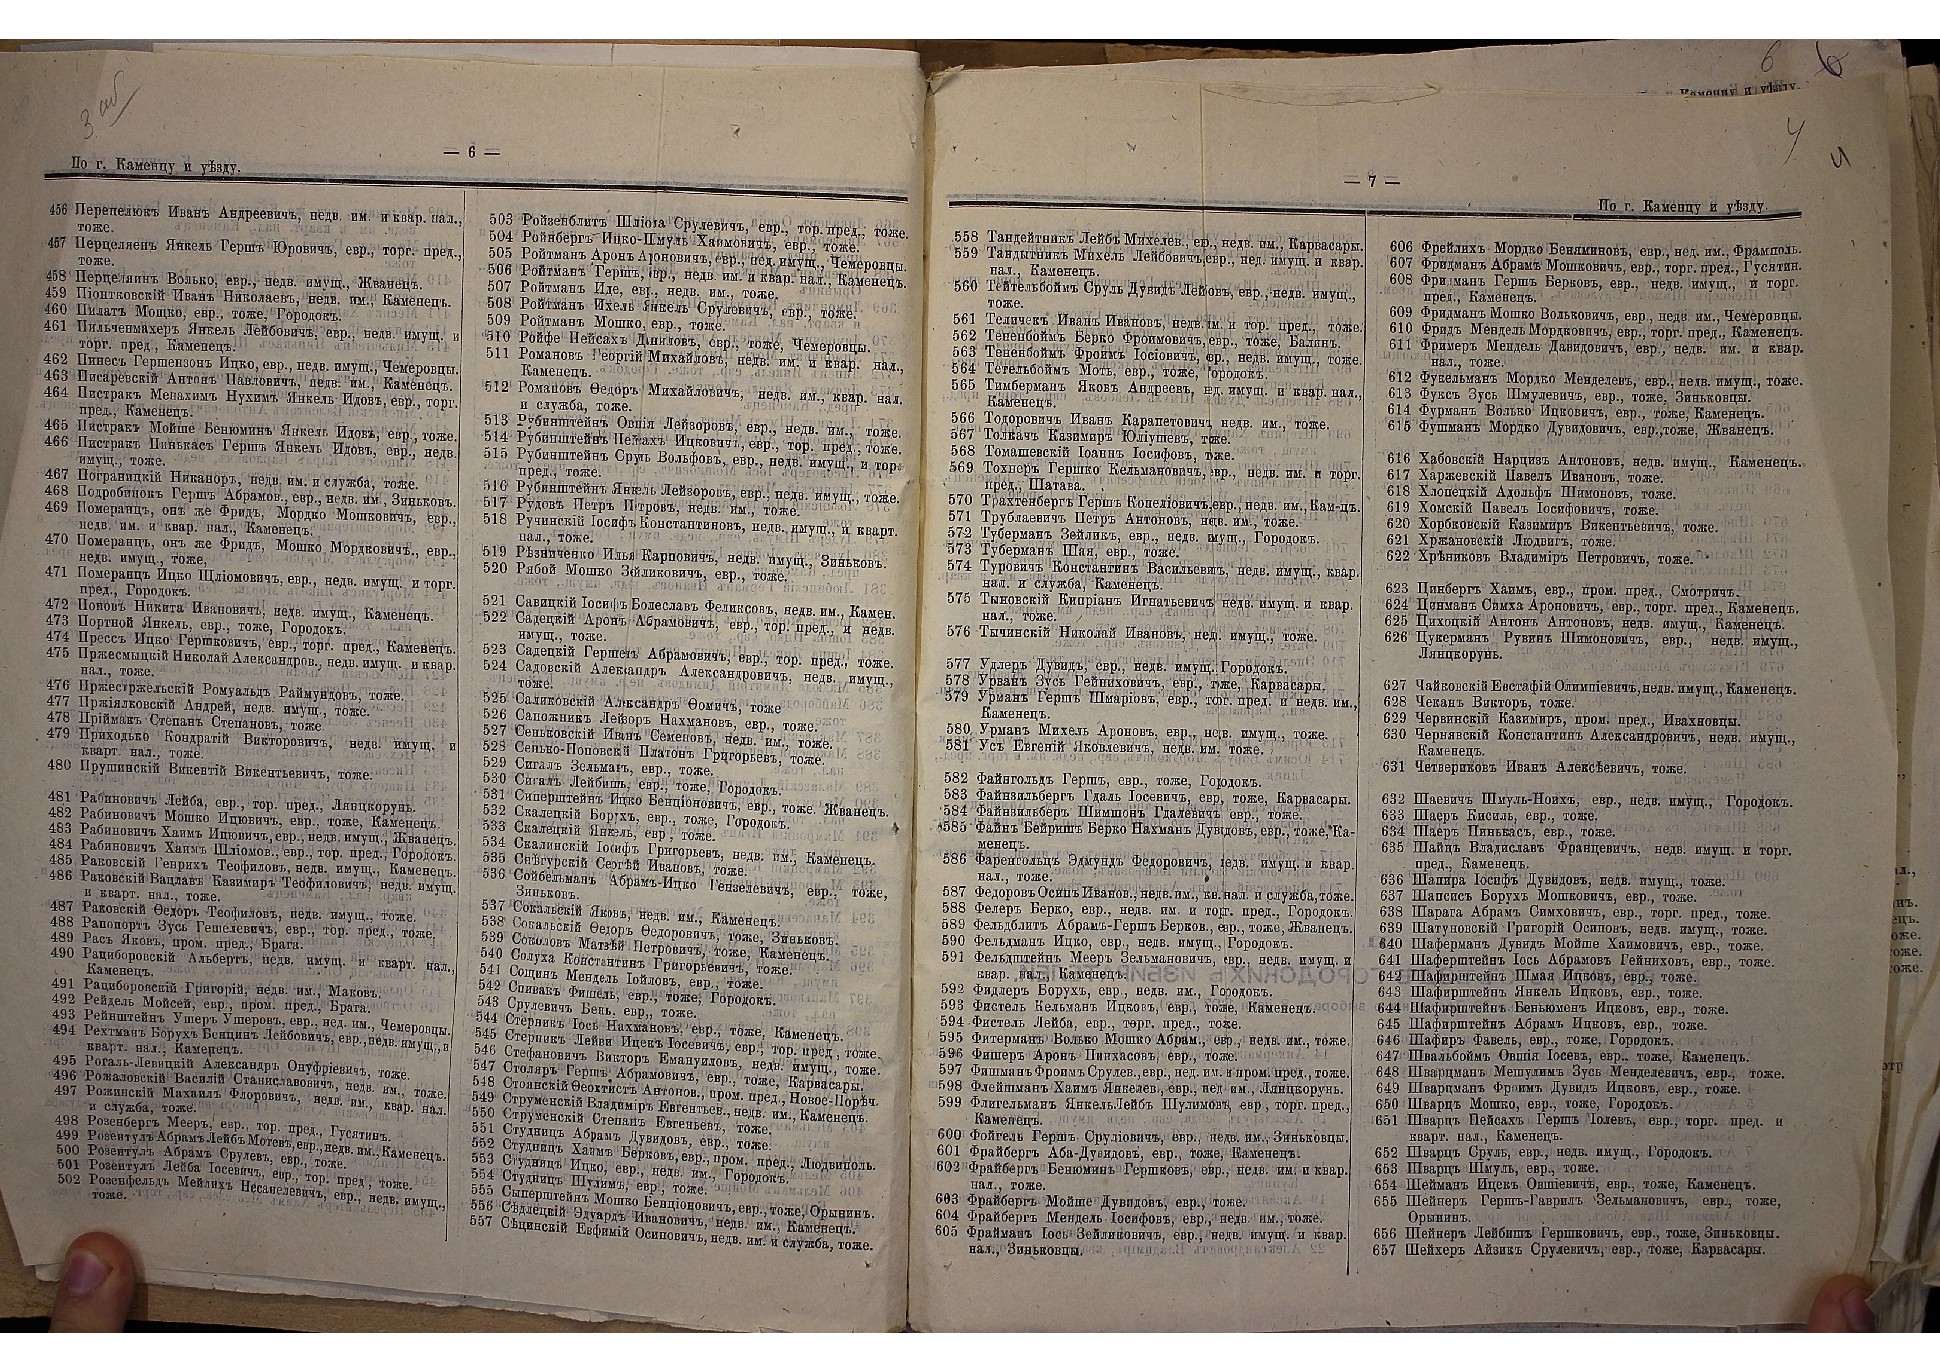 3 об
— 6 —
По г. Каменцу и уѣзду.
456 Перепелюкъ Иванъ Андреевичъ, недв. им. и квар. нал.,
тоже.
457 Перцеляенъ Янкель Гершъ Юровичъ, евр., торг. пред.,
тоже.
458 Перцеляинъ Волько, евр., недв. имущ., Жванецъ.
459 Піонтковскій Иванъ Николаевъ, недв. им., Каменецъ.
460 Пилатъ Мошко, евр., тоже, Городокъ.
461 Пильченмахеръ Янкель Лейбовичъ, евр., недв. имущ. и
торг. пред., Каменецъ.
462 Пинесъ Гершензонъ Ицко, евр., недв. имущ., Чемеровцы.
463 Писаревскій Антонъ Павловичъ, недв. им., Каменецъ.
464 Пистракъ Менахимъ Нухимъ Янкель Идовъ, евр., торг.
пред., Каменецъ.
465 Пистракъ Мойше Бенюминъ Янкель Идовъ, евр., тоже.
466 Пистракъ Пинькасъ Гершъ Янкель Идовъ, евр., недв.
имущ., тоже.
467 Пограницкій Никаноръ, недв. им. и служба, тоже.
468 Подробинокъ Гершъ Абрамов., евр., недв. им., Зиньковъ.
469 Померанцъ, онъ же Фридъ, Мордко Мошковичъ, евр.,
недв. им. и квар. нал., Каменецъ.
470 Померанцъ, онъ же Фридъ, Мошко Мордковичъ., евр.,
недв. имущ., тоже,
471 Померанцъ Ицко Шліомовичъ, евр., недв. имущ. и торг.
пред., Городокъ.
472 Поповъ Никита Ивановичъ, недв. имущ., Каменецъ.
473 Портной Янкель, евр., тоже, Городокъ.
474 Прессъ Ицко Гершковичъ, евр., торг. пред., Каменецъ.
475 Пржесмыцкій Николай Александров., недв. имущ. и квар.
нал., тоже.
476 Пржестржельскій Ромуальдъ Раймундовъ, тоже.
477 Пржіялковскій Андрей, недв. имущ., тоже.
478 Пріймакъ Степанъ Степановъ, тоже.
479 Приходько Кондратій Викторовичъ, недв. имущ. и
кварт. нал., тоже.
480 Прушинскій Викентій Викентьевичъ, тоже.
481 Рабиновичъ Лейба, евр., тор. пред., Лянцкорунь.
482 Рабиновичъ Мошко Ицковичъ, евр., тоже, Каменецъ.
483 Рабиновичъ Хаимъ Ицювичъ, евр., недв. имущ., Жванецъ.
484 Рабиновичъ Хаимъ Шліомов., евр., тор. пред., Городокъ.
485 Раковскій Генрихъ Теофиловъ, недв. имущ., Каменецъ.
486 Раковскій Вацлавъ Казимиръ Теофиловичъ, недв. имущ.
и кварт. нал., тоже.
487 Раковскій Ѳедоръ Теофиловъ, недв. имущ., тоже.
488 Рапопортъ Зусь Гешелевичъ, евр., тор. пред., тоже,
489 Расъ Яковъ, пром. пред., Брага.
490 Рациборовскій Альбертъ, недв. имущ. и кварт. нал.,
Каменецъ.
491 Рациборовскій Григорій, недв. им., Маковъ.
492 Рейдель Мойсей, евр., пром. пред., Брага.
493 Рейнштейнъ Ушеръ Ушеровъ, евр., нед. им., Чемеровцы.
494 Рехтманъ Борухъ Бенцинъ Лейбовичъ, евр., недв. имущ., и
кварт. нал., Каменецъ.
495 Рогаль-Левицкій Александръ Онуфріевичъ, тоже.
496 Рожаловскій Василій Станиславовичъ, недв. им., тоже.
497 Рожинскій Махаилъ Флоровичъ, недв. им., квар. нал.
и служба, тоже.
498 Розенбергъ Мееръ, евр., тор. пред., Гусятинъ.
499 Розентулъ Абрамъ Лейбъ Мотевъ, евр., недв. им., Каменецъ.
500 Розентулъ Абрамъ Срулевъ, евр., тоже.
501 Розентулъ Лейба Іосевичъ, евр., тор. пред., тоже.
502 Розенфельдъ Мейлихъ Несанелевичъ, евр., недв. имущ.,
тоже.
503 Ройзенблитъ Шліома Срулевичъ, евр., тор. пред., тоже.
504 Ройнбергъ Ицко-Шмуль Хаимовичъ, евр., тоже.
505 Ройтманъ Аронъ Ароновичъ, евр., нед. имущ., Чемеровцы.
506 Ройтманъ Гершъ, евр., недв. им. и квар. нал., Каменецъ.
507 Ройтманъ Иде, евр., недв. им., тоже.
508 Ройтманъ Ихель Янкель Срулевичъ, евр., тоже.
509 Ройтманъ Мошко, евр., тоже.
510 Ройфе Пейсахъ Даниловъ, евр., тоже, Чемеровцы.
511 Романовъ Георгій Михайловъ, недв. им. и квар. нал.,
Каменецъ.
512 Романовъ Ѳедоръ Михайловичъ, недв. им., квар. нал.
и служба, тоже.
513 Рубинштейнъ Овшія Лейзоровъ, евр., недв. им., тоже.
514 Рубинштейнъ Пейсахъ Ицковичъ, евр., тор. пред., тоже.
515 Рубинштейнъ Сруль Вольфовъ, евр., недв. имущ., и торг
пред., тоже.
516 Рубинштейнъ Янкель Лейзоровъ, евр., недв. имущ., тоже.
517 Рудовъ Петръ Петровъ, недв. им., тоже.
518 Ручинскій Іосифъ Константиновъ, недв. имущ., и кварт.
нал., тоже.
519 Рѣзниченко Илья Карповичъ, недв. имущ., Зиньковъ.
520 Рябой Мошко Зейликовичъ, евр., тоже,
521 Савицкій Іосифъ Болеславъ Феликсовъ, недв. им., Камен.
522 Садецкій Аронъ Абрамовичъ, евр., тор. пред., и недв.
имущ., тоже.
523 Садецкій Гершенъ Абрамовичъ, евр., тор. пред., тоже.
524 Садовскій Александръ Александровичъ, недв. имущ.,
тоже.
525 Саликовскій Александръ Ѳомичъ, тоже
526 Сапожникъ Лейзоръ Нахмановъ, евр., тоже.
527 Сеньковскій Иванъ Семеновъ, недв. им., тоже.
528 Сенько-Поповскій Платонъ Григорьевъ, тоже.
529 Сигалъ Зельманъ, евр., тоже.
530 Сигалъ Лейбишъ, евр., тоже, Городокъ.
531 Сиперштейнъ Ицко Бенціоновичъ, евр., тоже. Жванецъ.
532 Скалецкій Борухъ, евр., тоже, Городокъ.
533 Скалецкій Янкель, евр., тоже.
534 Скалинскій Іосифъ Григорьевъ, недв. им., Каменецъ.
535 Снѣгурскій Сергѣй Ивановъ, тоже.
536 Сойбельманъ Абрамъ-Ицко Гензелевичъ, евр., тоже,
Зиньковъ.
537 Сокальскій Яковъ, недв. им., Каменецъ.
538 Сокальскій Ѳедоръ Ѳедоровичъ, тоже, Зиньковъ.
539 Соколовъ Матвѣй Петровичъ, тоже, Каменецъ.
540 Солуха Константинъ Григорьевичъ, тоже.
541 Сощинъ Мендель Іойловъ, евр., тоже.
542 Спивакъ Фишель, евр., тоже, Городокъ.
543 Срулевичъ Бень, евр., тоже.
544 Стерникъ Іось Нахмановъ, евр., тоже, Каменецъ.
545 Стерникъ Лейви Ицекъ Іосевичъ, евр., тор. пред., тоже.
546 Стефановичъ Викторъ Емануиловъ, недв. имущ., тоже.
547 Столяръ Гершъ Абрамовичъ, евр., тоже, Карвасары.
548 Стоянскій Ѳеоктистъ Антонов., пром. пред., Новое-Порѣч.
549 Струменскій Владиміръ Евгеньев., недв. им., Каменецъ.
550 Струменскій Степанъ Евгеньевъ, тоже.
551 Студницъ Абрамъ Дувидовъ, евр., тоже.
552 Студницъ Хаимъ Берковъ, евр., пром. пред., Людвиполь.
553 Студницъ Ицко, евр., недв. им., Городокъ.
554 Студницъ Шулимъ, евр., тоже.
555 Сыперштейнъ Мошко Бенціоновичъ, евр., тоже, Орынинъ.
556 Сѣдлецкій Эдуардъ Ивановичъ, недв. им., Каменецъ.
557 Сѣцинскій Евфимій Осиповичъ, недв. им. и служба, тоже.
6
Каменцу и уѣзду.
— 7 —
По г. Каменцу и уѣзду.
558 Тандейтникъ Лейбъ Михелев., ев., недв. им., Карвасары.
559 Тандытникъ Михель Лейбовичъ, евр., нед. имущ. и квар.
нал., Каменецъ.
560 Тейтельбоймъ Сруль Дувидъ Лейбовъ, евр., недв. имущ.,
тоже.
561 Теличекъ Иванъ Ивановъ, недв. им. и тор. пред., тоже.
562 Тененбоймъ Берко Фроимовичъ, евр., тоже, Балинъ.
563 Тененбоймъ Фроимъ Іосіовичъ, евр., недв. имущ., тоже.
564 Тетельбоймъ Моть, евр., тоже, Городокъ.
565 Тимберманъ Яковъ Андреев, нед. имущ. и квар. нал.,
Каменецъ.
566 Тодоровичъ Иванъ Карапетовичъ, недв. им., тоже.
567 Толкачъ Казимиръ Юліушевъ, тоже.
568 Томашевскій Іоаннъ Іосифовъ, тоже.
569 Тохнеръ Гершко Кельмановичъ, евр., недв. им. и торг.
пред., Шатава.
570 Трахтенбергъ Гершъ Конеліовичъ, евр., недв. им., Кам-цъ.
571 Трублаевичъ Петръ Антоновъ, недв. им., тоже.
572 Туберманъ Зейликъ, евр., недв. имущ., Городокъ.
573 Туберманъ Шая, евр., тоже.
574 Туровичъ Константинъ Васильевичъ, недв. имущ., квар.
нал. и служба, Каменецъ.
575 Тыновскій Кипріанъ Игнатьевичъ, недв. имущ. и квар.
нал., тоже.
576 Тычинскій Николай Ивановъ, нед. имущ., тоже.
577 Удлеръ Дувидъ, евр., недв. имущ., Городокъ.
578 Урванъ Зусь Гейниховичъ, евр., тоже, Карвасары.
579 Урманъ Гершъ Шмаріовъ, евр., торг. пред. и недв. им.,
Каменецъ.
580 Урманъ Михель Ароновъ, евр., недв. имущ., тоже.
581 Усъ Евгеній Яковлевичъ, недв. им. тоже.
582 Файнгольдъ Гершъ, евр., тоже, Городокъ.
583 Файнвильбергъ Гдаль Іосевичъ, евр, тоже, Карвасары.
584 Файнвилберъ Шимшонъ Гдалевичъ, евр., тоже.
585 Файнъ Бейришъ Берко Нахманъ Дувидовъ, евр., тоже, Ка-
менецъ.
586 Фаренгольцъ Эдмундъ Федоровичъ, недв. имущ. и квар.
нал., тоже.
587 Федоровъ Осипъ Иванов., недв. им., кв. нал. и служба, тоже.
588 Фелеръ Берко, евр., недв. им. и торг. пред., Городокъ.
589 Фельдблитъ Абрамъ-Гершъ Берков., евр., тоже, Жванецъ.
590 Фельдманъ Ицко, евр., недв. имущ., Городокъ.
591 Фельдштейнъ Мееръ Зельмановичъ, евр., недв. имущ. и
квар. нал., Каменецъ.
592 Фидлеръ Борухъ, евр., недв. им., Городокъ.
593 Фистель Кельманъ Ицковъ, евр., тоже, Каменецъ.
594 Фистель Лейба, евр., торг. пред., тоже.
595 Фитерманъ Волько Мошко Абрам., евр., недв. им., тоже.
596 Фишеръ Аронъ Пинхасовъ, евр., тоже.
597 Фишманъ Фроимъ Срулев., евр., нед. им. и пром. пред., тоже.
598 Флейшманъ Хаимъ Янкелев., евр., нед им., Лянцкорунь.
599 Флигельманъ Янкель Лейбъ Шулимовъ, евр., торг. пред.,
Каменецъ.
600 Фойгель Гершъ Сруліовичъ, евр., недв. им., Зиньковцы.
601 Фрайбергъ Аба-Дувидовъ, евр., тоже, Каменецъ.
602 Фрайбергъ Бенюминъ Гершковъ, евр., недв. им. и квар.
нал., тоже.
603 Фрайбергъ Мойше Дувидовъ, евр., тоже.
604 Фрайбергъ Мендель Іосифовъ, евр., недв. им., тоже.
605 Фрайманъ Іось Зейликовичъ, евр., недв. имущ. и квар.
нал., Зиньковцы.
606 Фрейлихъ Мордко Беняминовъ, евр., нед. им., Фрамполь.
607 Фридманъ Абрамъ Мошковичъ, евр., торг. пред., Гусятин.
608 Фридманъ Гершъ Берковъ, евр., недв. имущ., и торг.
пред., Каменецъ.
609 Фридманъ Мошко Вольковичъ, евр., недв. им., Чемеровцы.
610 Фридъ Мендель Мордковичъ, евр., торг. пред., Каменецъ.
611 Фримеръ Мендель Давидовичъ, евр., недв. им. и квар.
нал., тоже.
612 Фукельманъ Мордко Менделев., евр., недв. имущ., тоже.
613 Фуксъ Зусь Шмулевичъ, евр., тоже, Зиньковцы.
614 Фурманъ Волько Ицковичъ, евр., тоже, Каменецъ.
615 Фушманъ Мордко Дувидовичъ, евр., тоже, Жванецъ.
616 Хабовскій Нарцизъ Антоновъ, недв. имущ., Каменецъ.
617 Харжевскій Павелъ Ивановъ, тоже.
618 Хлопецкій Адольфъ Шимоновъ, тоже.
619 Хомскій Павелъ Іосифовичъ, тоже.
620 Хорбковскій Казимиръ Викентьевичъ, тоже.
621 Хржановскій Людвигъ, тоже.
622 Хрѣниковъ Владиміръ Петровичъ, тоже.
623 Цинбергъ Хаимъ, евр., пром. пред., Смотричъ.
624 Ципманъ Симха Ароновичъ, евр., торг. пред., Каменецъ.
625 Цихоцкій Антонъ Антоновъ, недв. имущ., Каменецъ.
626 Цукерманъ Рувинъ Шимоновичъ, евр., недв. имущ.,
Лянцкорунь.
627 Чайковскій Евстафій Олимпіевичъ, недв. имущ., Каменецъ.
628 Чеканъ Викторъ, тоже.
629 Червинскій Казимиръ, пром. пред., Ивахновцы.
630 Чернявскій Константинъ Александровичъ, недв. имущ.,
Каменецъ.
631 Четвериковъ Иванъ Алексѣевичъ, тоже.
632 Шаевичъ Шмуль-Ноихъ, евр., недв. имущ., Городокъ.
633 Шаеръ Кисиль, евр., тоже.
634 Шаеръ Пинькасъ, евр., тоже.
635 Шайцъ Владиславъ Францевичъ, недв. имущ. и торг.
пред., Каменецъ.
636 Шапира Іосифъ Дувидовъ, недв. имущ., тоже.
637 Шапсисъ Борухъ Мошковичъ, евр., тоже.
638 Шарага Абрамъ Симховичъ, евр., торг. пред., тоже.
639 Шатуновскій Григорій Осиповъ, недв. имущ., тоже.
640 Шаферманъ Дувидъ Мойше Хаимовичъ, евр., тоже.
641 Шаферштейнъ Іось Абрамовъ Гейниховъ, евр., тоже.
642 Шафирштейнъ Шмая Ицковъ, евр., тоже.
643 Шафирштейнъ Янкель Ицковъ, евр., тоже.
644 Шафирштейнъ Беньюменъ Ицковъ, евр., тоже.
645 Шафирштейнъ Абрамъ Ицковъ, евр., тоже.
646 Шафиръ Фавель, евр., тоже, Городокъ.
647 Швальбоймъ Овшія Іосевъ, евр., тоже, Каменецъ.
648 Шварцманъ Мешулимъ Зусь Менделевичъ, евр., тоже.
649 Шварцманъ Фроимъ Дувидъ Ицковъ, евр., тоже.
650 Шварцъ Мошко, евр., тоже, Городокъ.
651 Шварцъ Пейсахъ Гершъ Іолевъ, евр., торг. пред. и
кварт. нал., Каменецъ.
652 Шварцъ Сруль, евр., недв. имущ., Городокъ.
653 Шварцъ Шмуль, евр., тоже.
654 Шейманъ Ицекъ Овшіевичъ, евр., тоже, Каменецъ.
655 Шейнеръ Гершъ-Гавриль Зельмановичъ, евр., тоже,
Орынинъ.
656 Шейнеръ Лейбишъ Гершковичъ, евр., тоже, Зиньковцы.
657 Шейхеръ Айзикъ Срулевичъ, евр., тоже, Карвасары.